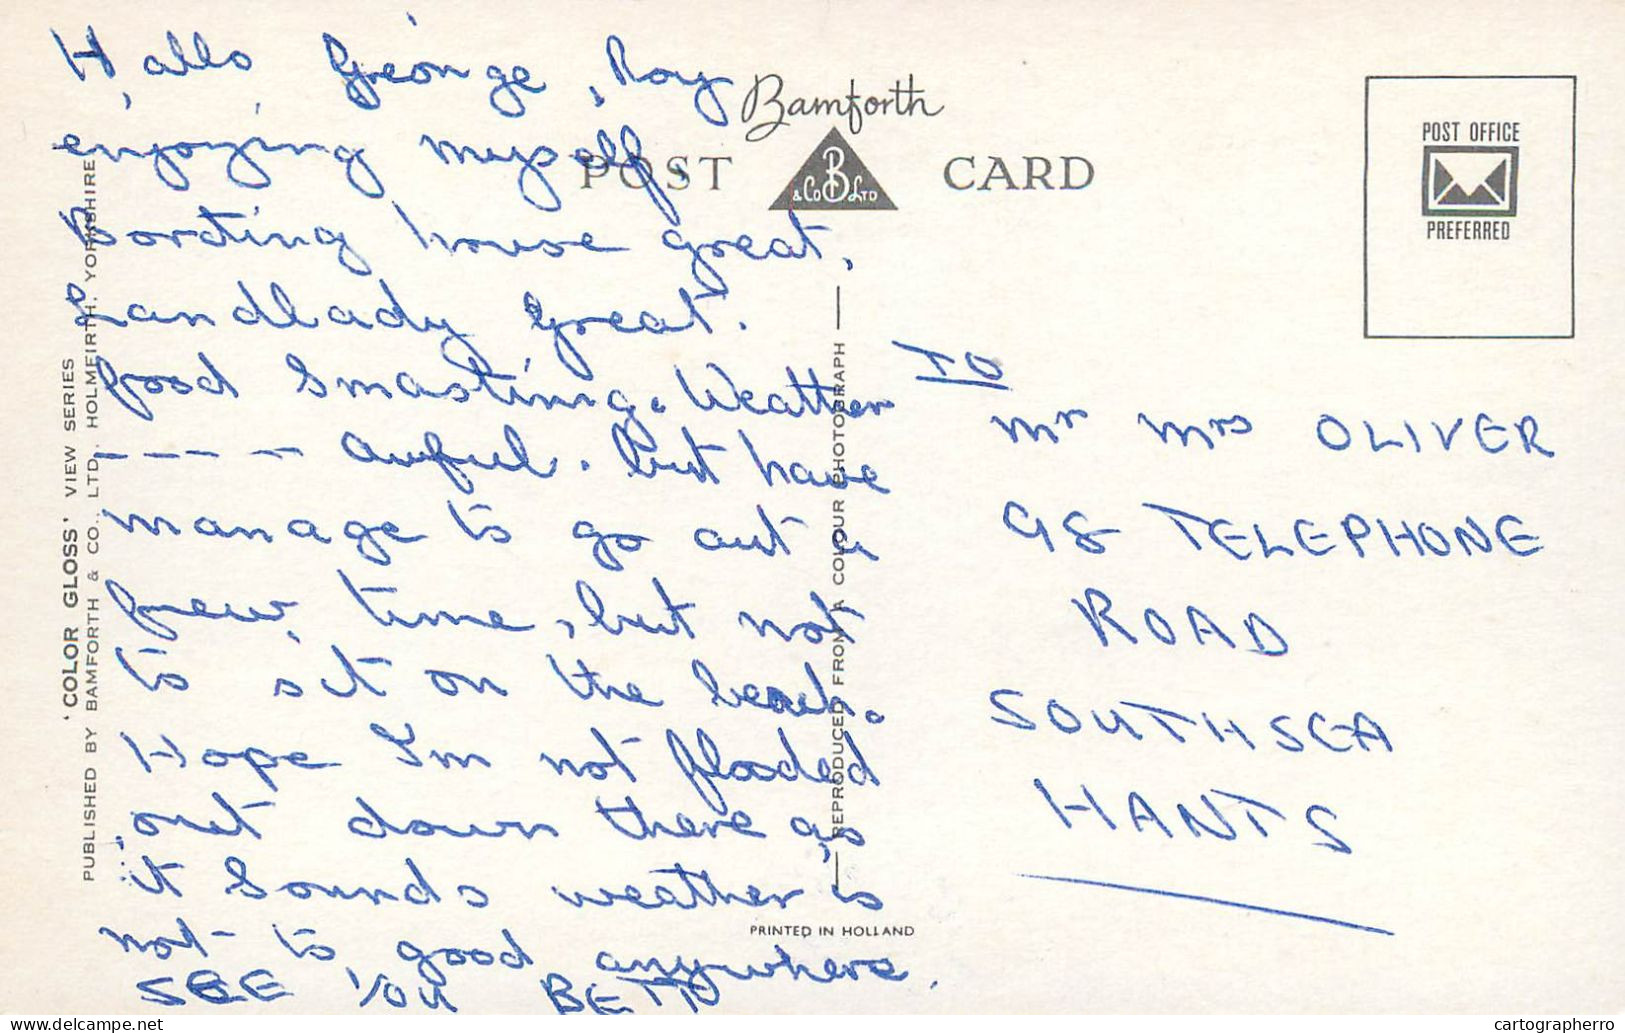 Hallo George, Roy
enjoying myself,
Bording house great,
Landlady great.
food Smasting. Weather
---- awful. but have
manage to go out a
few time, but not
to sit on the beach.
Hope I'm not flooded
out down there as
it Sounds weather is
not to good anywhere.
SEE YOU BETTY
Bamforth
POST CARD
& Co B LTD
POST OFFICE
PREFERRED
TO
Mr Mrs OLIVER
98 TELEPHONE
ROAD
SOUTHSEA
HANTS
'COLOR GLOSS' VIEW SERIES
PUBLISHED BY BAMFORTH & CO., LTD. HOLMFIRTH. YORKSHIRE
REPRODUCED FROM A COLOUR PHOTOGRAPH
PRINTED IN HOLLAND
delcampe.net
cartographerro